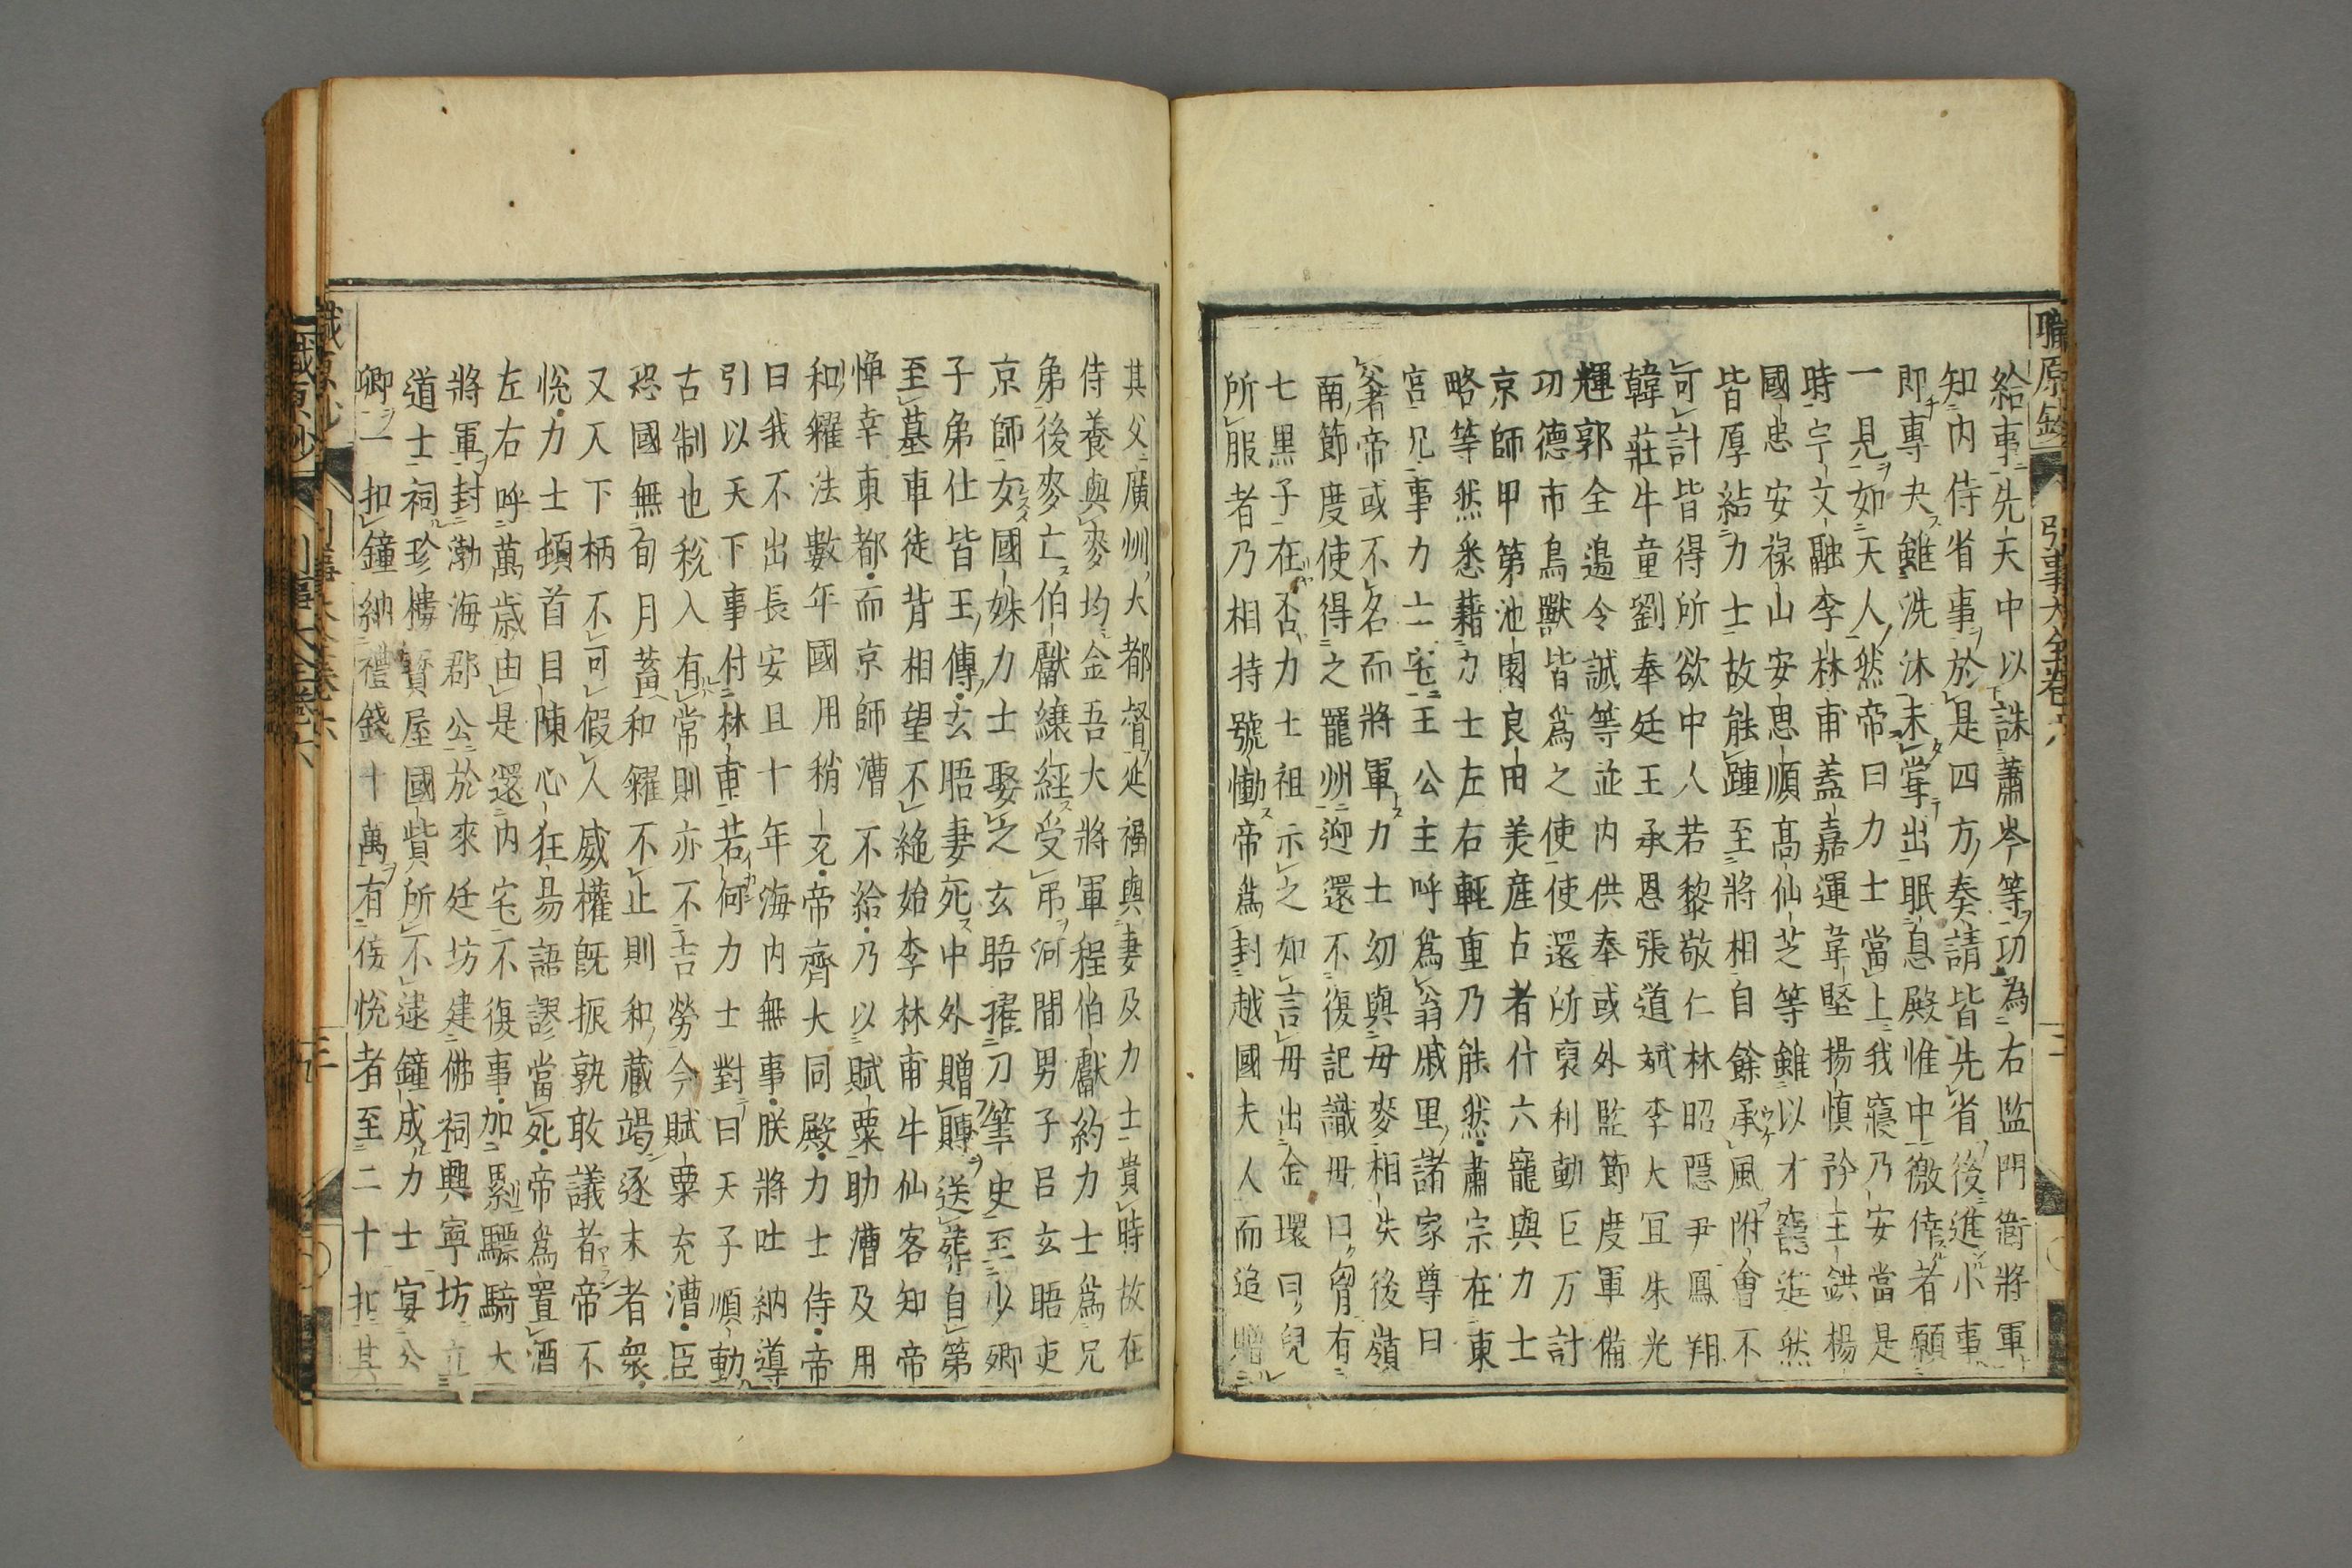 職原鈔 引事大全卷六
給事先天中以誅蕭岑等功為右監門衛將軍
知內侍省事於是四方奏請皆先省後進小事
即專决雖洗沐未甞出眠息殿帷中徼倖者願
一見如天人然帝曰力士當上我寢乃安當是
時宇文融李林甫蓋嘉運韋堅揚慎矜王鉷楊
國忠安祿山安思順髙仙芝等雖以才寵進然
皆厚結力士故能踵至將相自餘承風附會不
可計皆得所欲中人若黎敬仁林昭隱尹鳳翔
韓莊牛童劉奉廷王承恩張道斌李大宜朱光
輝郭全邉令誠等並內供奉或外監節度軍備
功德市鳥獸皆為之使使還所裒利動巨万計
京師甲第池園良田美產占者什六寵與力士
略等然悉藉力士左右輕重乃能然肅宗在東
宮兄事力士宅王公主呼為翁戚里諸家尊曰
㸙著帝或不名而將軍力士幼與母麥相失後嶺
南節度使得之瀧州迎還不復記識母曰胷有
七黒子在否力士袒示之如言母出金環曰兒
所服者乃相持號慟帝為封越國夫人而追贈
其父廣州大都督延福與妻及力士貴時故在
侍養與麥均金吾大將軍程伯獻約力士為兄
弟後麥亡伯獻縗絰受弔河間男子呂玄晤吏
京師女國姝力士娶之玄晤擢刀筆史至少卿
子弟仕皆王傅玄晤妻死中外贈賻送葬自第
至墓車徒背相望不絶始李林甫牛仙客知帝
憚幸東都而京師漕不給乃以賦粟助漕及用
和糴法數年國用稍充帝齋大同殿力士侍帝
曰我不出長安且十年海內無事朕將吐納導
引以天下事付林甫若何力士對曰天子順動
古制也稅入有常則亦不吉勞今賦粟充漕臣
恐國無旬月蓄和糴不止則和藏竭逐末者衆
又天下柄不可假人威權既振孰敢議者帝不
悅力士頓首自陳心狂易語謬當死帝為置酒
左右呼萬歲由是還內宅不復事加累驃騎大
將軍封渤海郡公於來廷坊建佛祠興寧坊立
道士祠珍樓寶屋國貲所不逮鐘成力士宴公
卿一扣鐘納禮錢十萬有佞悅者至二十扣其